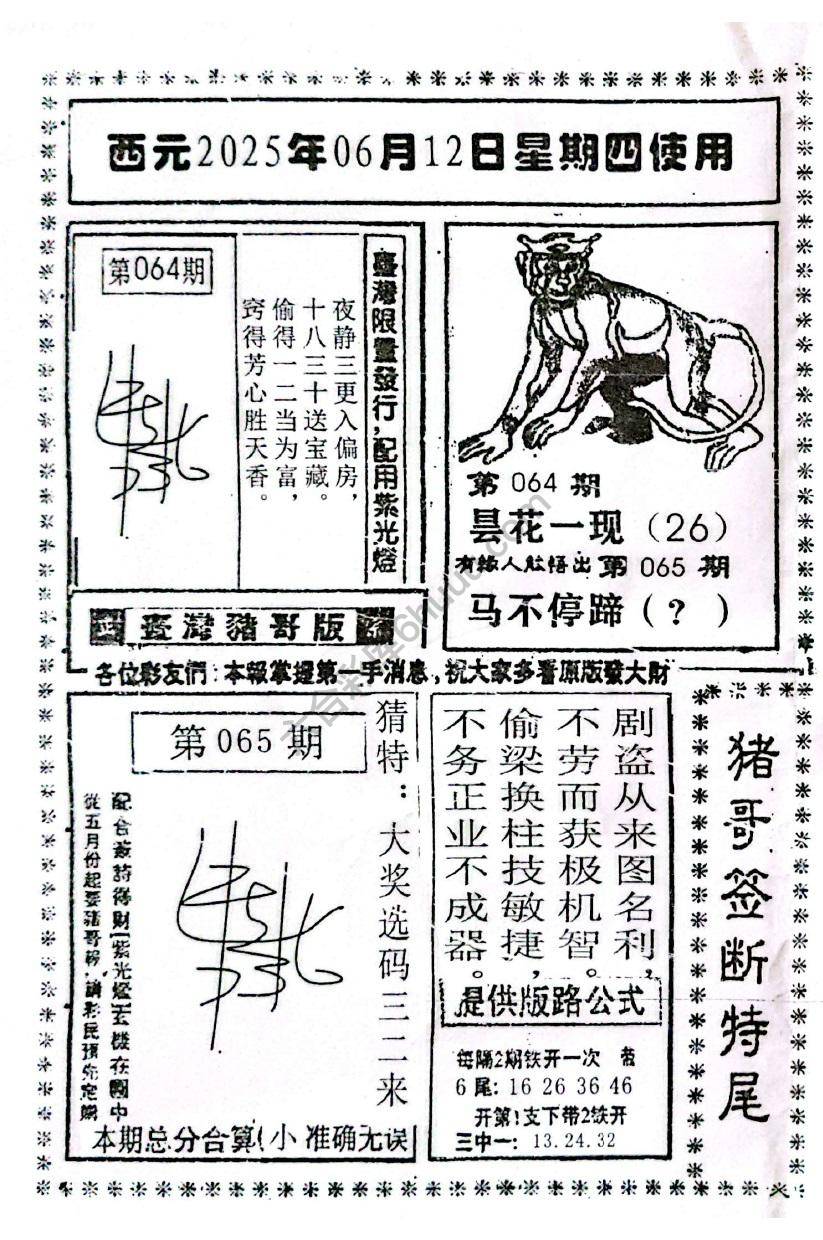 西元2025年06月12日星期四使用
第064期
夜静三更入偏房，
十八三十送宝藏。
偷得一二当为富，
窍得芳心胜天香。
臺灣限量發行，配用紫光燈
第 064 期
昙花一现（26）
有緣人能悟出 第 065 期
马不停蹄（？）
臺灣豬哥版
各位彩友們：本報掌握第一手消息，祝大家多看原版發大財
第 065 期
猜特：大奖选码三二来
從五月份起要豬哥報，請彩民預先定購
本期总分合算(小 准确无误
剧盗从来图名利，
不劳而获极机智。
偷梁换柱技敏捷，
不务正业不成器。
提供版路公式
每隔2期铁开一次
6尾：16 26 36 46
开第1支下带2铁开
三中一：13.24.32
猪哥签断特尾
六合彩库6huuu.com